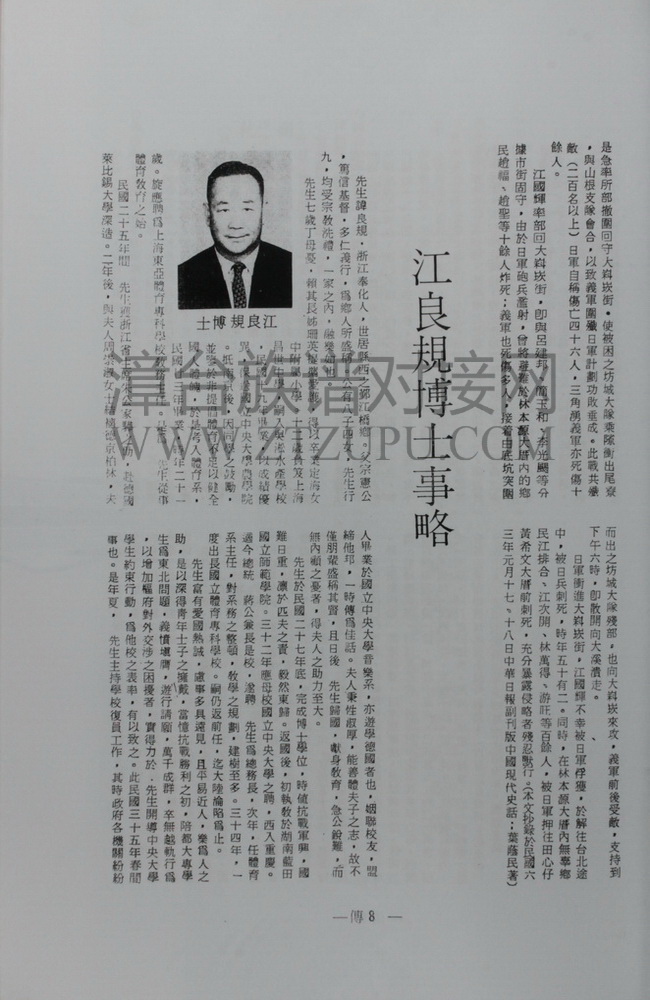 是急率所部撤圍回守大嵙崁街。使被困之坊城大隊乘隊衝出尾寮
，與山根支隊會合，以致義軍圍殲日軍計劃功敗垂成。此戰共殲
敵（二百名以上）日軍自稱傷亡四十六人，三角湧義軍亦死傷十
餘人。
江國輝率部回大嵙崁街，卽與呂建邦、簡玉和、李光颺等分
據市街固守，由於日軍砲兵濫射，曾將避難於林本源大厝內的鄉
民趙福、趙聖等十餘人炸死；義軍也死傷多人，接着由底坑突圍
而出之坊城大隊殘部，也向大嵙崁來攻，義軍前後受敵，支持到
下午六時，卽散開向大溪潰走。
日軍衝進大嵙崁街，江國輝不幸被日軍俘獲，於解往台北途
中，被日兵刺死，時年五十有二。同時，在林本源大厝內無辜鄉
民江排合、江次開、林萬得、游旺等百餘人，被日軍押往田心仔
黃希文大厝前刺死，充分暴露侵略者殘忍獸行。（本文抄錄於民國六
三年元月十七、十八日中華日報副刊版中國現代史話；葉蔭民著）
江良規博士事略
江良規博士
先生諱良規，浙江奉化人，世居縣西之鄞江橋鄉。父宗憲公
，篤信基督，多仁義行，爲鄉人所盛稱。公有八子四女，先生行
九，均受宗教洗禮，一家之內，融樂如也
先生七歲丁母憂，賴其長姊珊英
中附屬小學，十二歲負笈上海
民國二十三年畢業，時年二十一
歲。旋應聘爲上海東亞體育專科學校教務主任。是爲先生從事
體育教育之始。
民國二十五年間，先生應浙江省主席朱公家驊之助，赴德國
萊比錫大學深造。二年後，與夫人周崇淑女士結婚於京柏林，夫
人畢業於國立中央大學音樂系，亦遊學德國者也，姻聯校友，盟
締他邦，一時傳爲佳話。夫人秉性淑厚，能善體夫子之志，故不
僅朋輩盛稱其賢，且日後　先生歸國，獻身教育，急公銳難，而
無內顧之憂者，得夫人之助力至大。
先生於民國二十七年底，完成博士學位，時値抗戰軍興，國
難日重，凜於匹夫之責，毅然東歸。返國後，初執教於湖南藍田
國立師範學院。三十二年應母校國立中央大學之聘，西入重慶。
適今總統　蔣公兼長是校，遂聘　先生爲總務長，次年，任體育
系主任，對系務之整頓，敎學之規劃，建樹至多。三十四年，一
度出長國立體育專科學校。嗣仍返前任，迄大陸淪陷爲止。
先生富有愛國熱誠，慮事多具遠見，且平易近人，樂爲人之
助，是以深得靑年士子之擁戴，當億抗戰勝利之初，陪都大專學
生爲東北問題，義憤塡膺，遊行請願，萬千成群，卒無越軌行爲
，以增加驅府對外交涉之困擾者，實得力於　先生開導中央大學
學生約束行動，爲他校之表率，有以致之。此民國三十五年春間
事也。是年夏，　先生主持學校復員工作，其時政府各機關紛紛
— 傳 8 —
漳台族谱对接网
WWW.ZTZUPU.COM